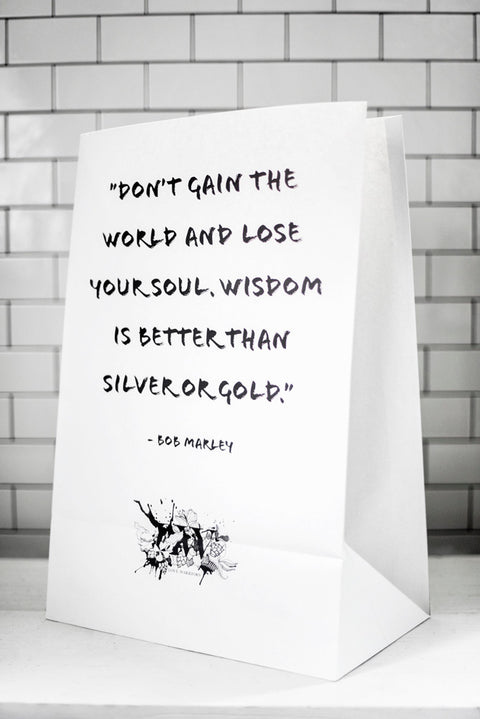 "DON'T GAIN THE
WORLD AND LOSE
YOUR SOUL. WISDOM
IS BETTER THAN
SILVER OR GOLD."
- BOB MARLEY